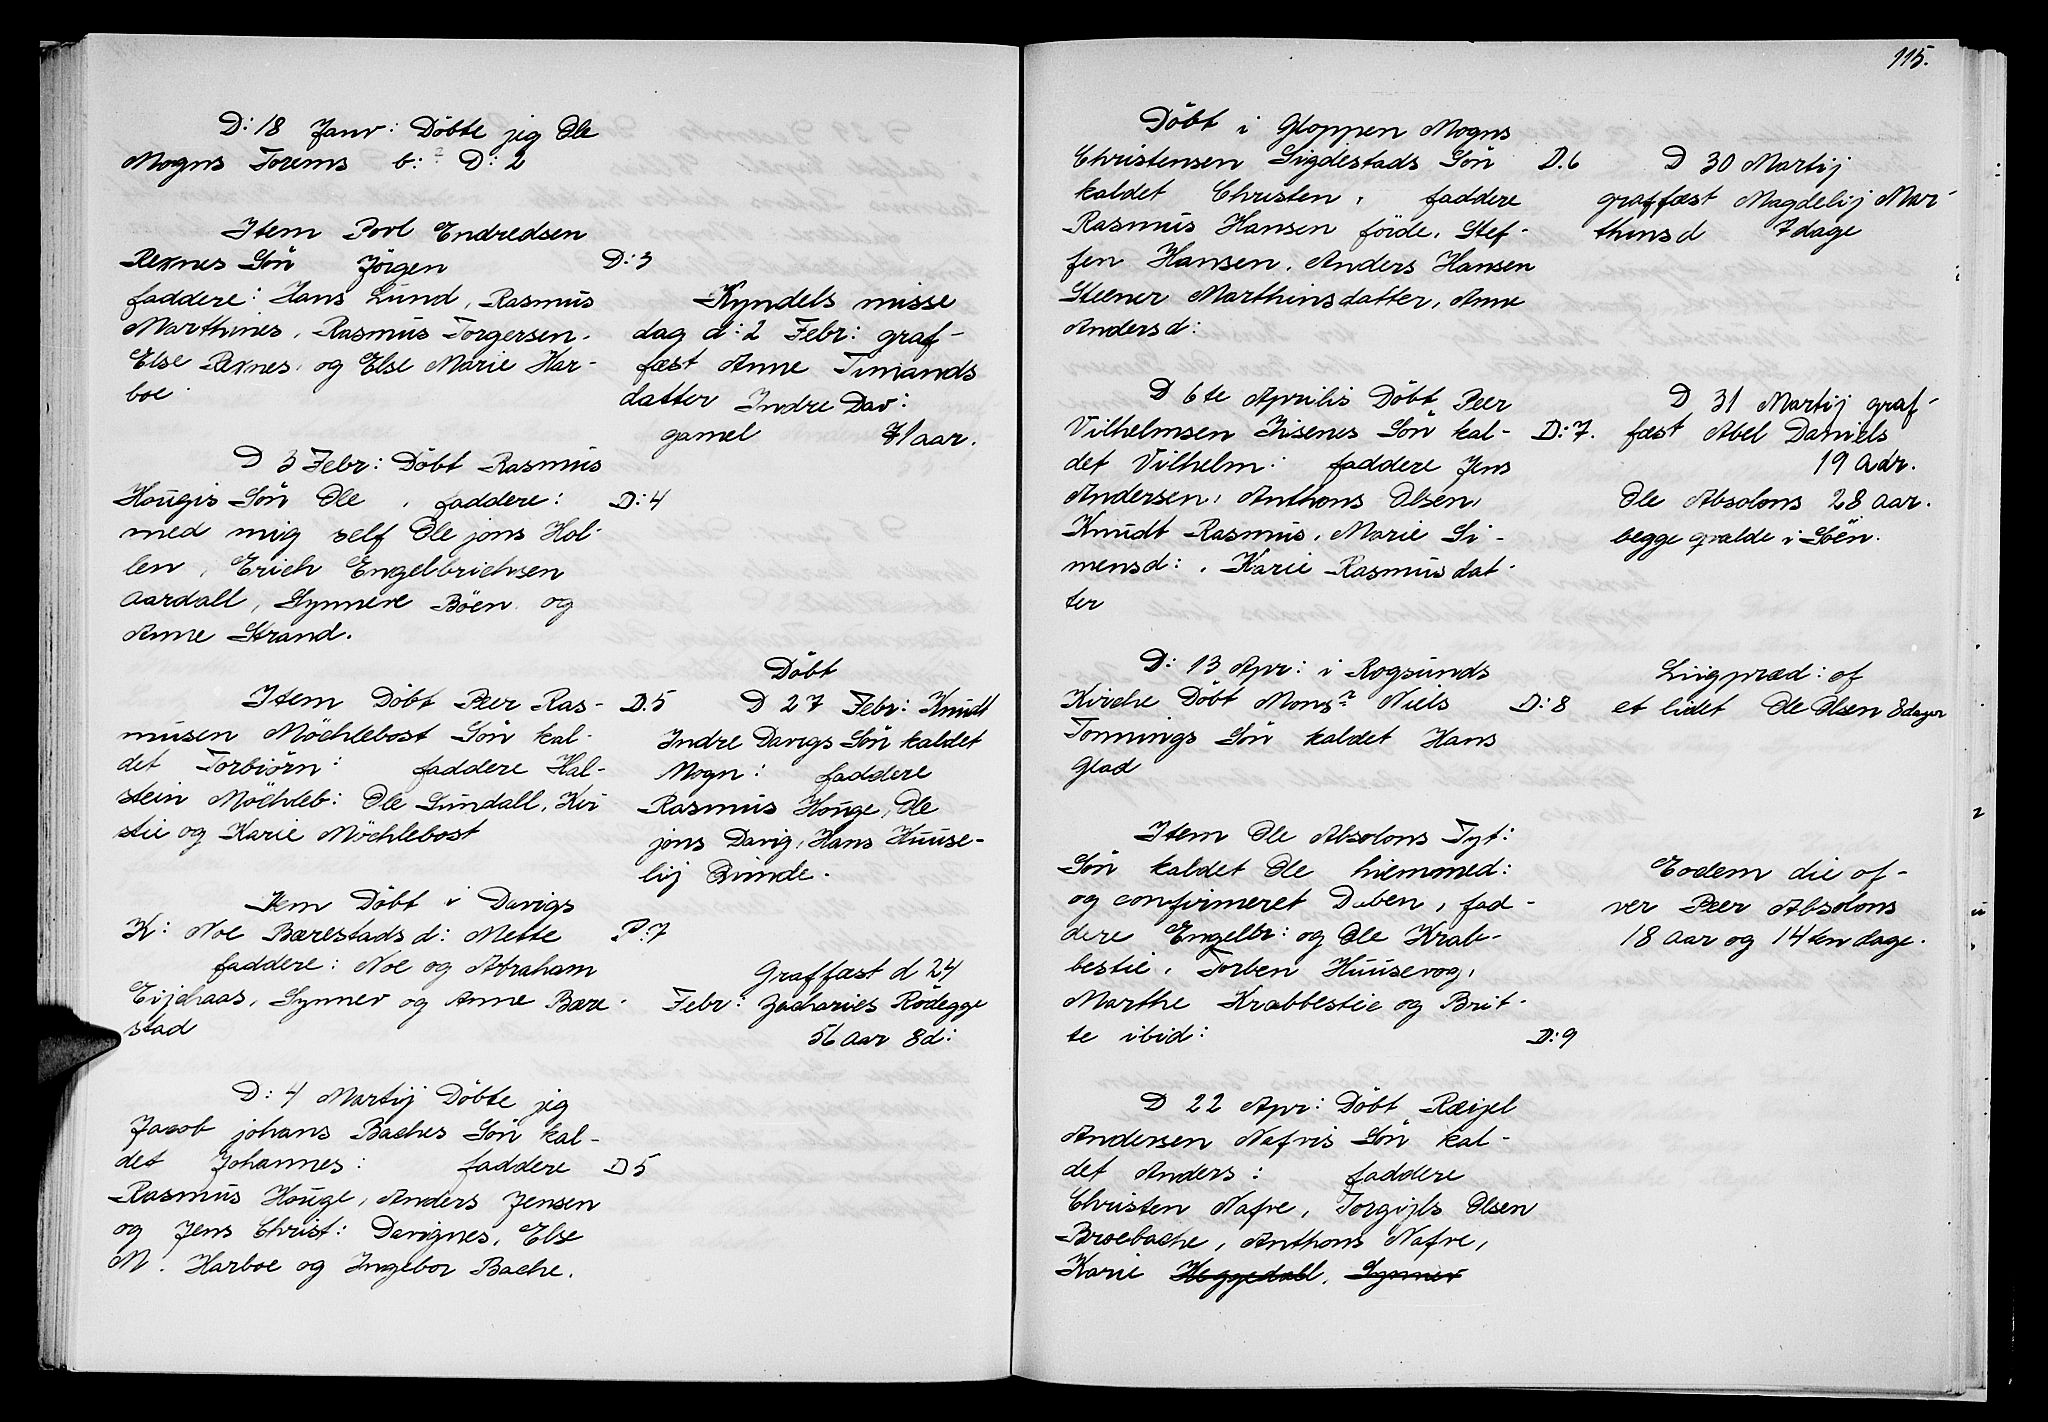 D: 18 Janv: Döbte jeg Ole
Mogns Torems b:? D: 2
Item Povl Endredsen
Rexnes Sön Jörgen D: 3
faddere: Hans Lund, Rasmus
Marthines, Rasmus Torgersen.
Else Rexnes, og Else Marie Har-
boe
D 3 Febr: Döbt Rasmus
Hougis Sön Ole, faddere: D: 4
med mig self Ole jons Hol-
len, Erich Engelbrichsen
Aardall, Synneve Böen og
Anne Strand.
Item Döbt Peer Ras- D. 5
musen Möchlebost Sön kal-
det Torbiörn: faddere Hal-
stein Möchleb: Ole Sundall, Kir
stie og Karie Möchlebost
Item Döbt i Davigs
K: Noe Bærestads d: Mette P: 7
faddere: Noe og Abraham
Eijehaas, Synnev og Anne Bære-
stad
D: 4 Martij Döbte jeg
Jacob johans Baches Sön kal-
det Johannes: faddere D 5
Rasmus Houge, Anders Jensen
og Jens Christ: Davignes, Else
M. Harboe og Ingebor Bache.
Kyndels misse
dag d: 2 Febr: graf-
fæst Anne Timands
datter Indre Dav:
gamel 71 aar.
Döbt
D 27 Febr: Knudt
Indre Davigs Sön kaldet
Mogn: faddere
Rasmus Houge, Ole
jons Davig, Hans Huuse-
lij Rimde.
Graffæst d 24
Febr: Zacharies Rödegge
56 Aar 8 d:
115.
Döbt i Gloppen Mogns
Christensen Sigdestads Sön D. 6
kaldet Christen, faddere
Rasmus Hansen förde, Stef-
fen Hansen, Anders Hansen
Steener Marthinsdatter, Anne
Andersd:
D 6te Aprilis Döbt Peer
Vilhelmsen Hisenes Sön kal- D: 7.
det Vilhelm: faddere Jens
Andersen, Anthons Olsen,
Knudt Rasmus, Marie Si-
mensd:, Karie Rasmusdat-
ter
D: 13 Apr: i Rogsunds
Kirche Döbt Monsr Niels D: 8
Tonnings Sön kaldet Hans
Glad
Item Ole Absolons Tyt:
Sön kaldet Ole hiemmed:
og confirmeret Daben, fad-
dere Engelbr: og Ole Krab-
bestie, Torben Huusevog,
Marthe Krabbestie og Brit-
te ibid: D: 9
D 22 Apr: Döbt Reijel
Andersen Nafvis Sön kal-
det Anders: faddere
Christen Nafve, Torgijls Olsen
Broebache, Anthons Nafve,
Karie Heggedall, Synnev
D 30 Martij
graffæst Magdelij Mar-
thinsd 7 dage
D 31 Martij graf-
fæst Abel Daniels
19 Adr.
Ole Absolons 28 Aar.
begge qvalde i Söen.
Liigpræd: of
et lidet Ole Olsen 8 dager
Eodem die of-
ver Peer Absolons
18 Aar og 14ten dage.